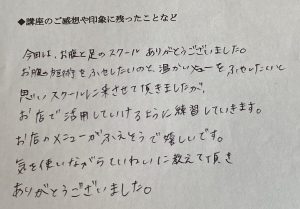 ◆講座のご感想や印象に残ったことなど
今回は、お腹と足のスクール ありがとうございました。
お腹の施術をふやしたいのと、温かいメニューをふやしたいと
思い スクールに来させて頂きましたが、
お店で活用していけるように練習していきます。
お店のメニューがふえそうで嬉しいです。
気を使いながらていねいに教えて頂き
ありがとうございました。